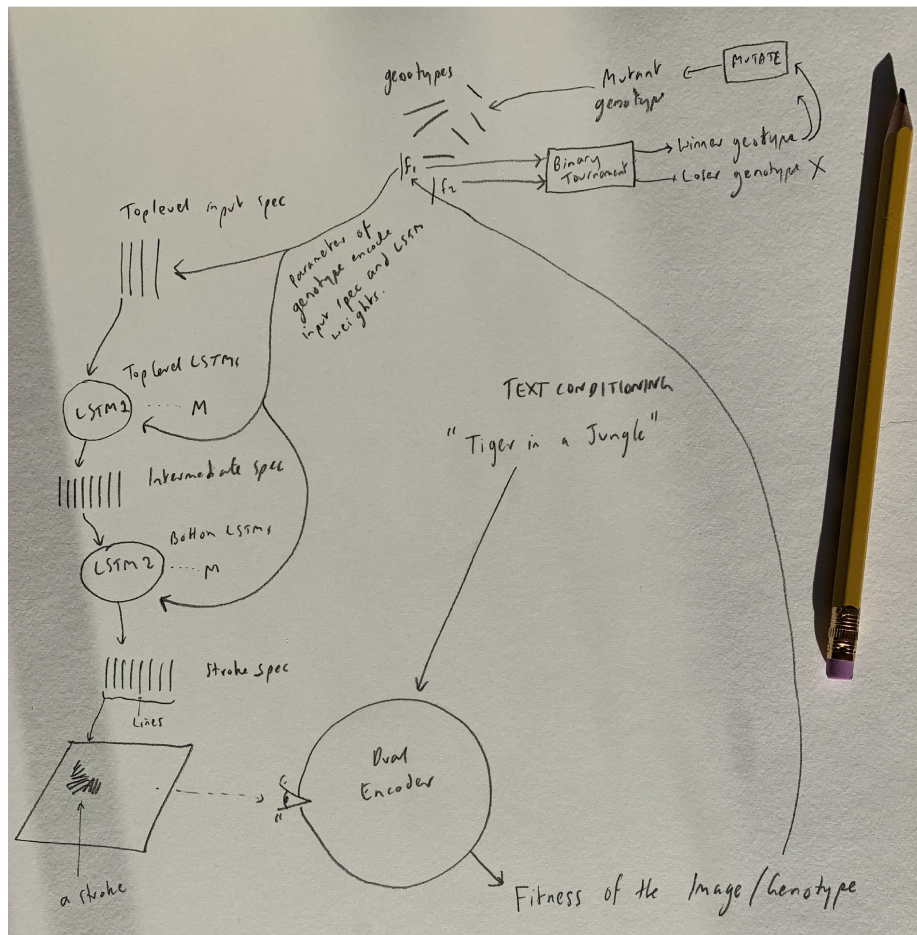 geotypes
Mutant
genotype
MUTATE
f1
f2
Binary
Tournament
Winner geotype
Loser genotype X
Toplevel input spec
Parameter of
genotype encode
input spec and LSTM
weights.
Toplevel LSTMs
LSTM1 ...... M
Intermediate spec
Bottom LSTMs
LSTM 2 ...... M
Stroke spec
Lines
a stroke
TEXT CONDITIONING
"Tiger in a Jungle"
Dual
Encoder
Fitness of the Image/Genotype